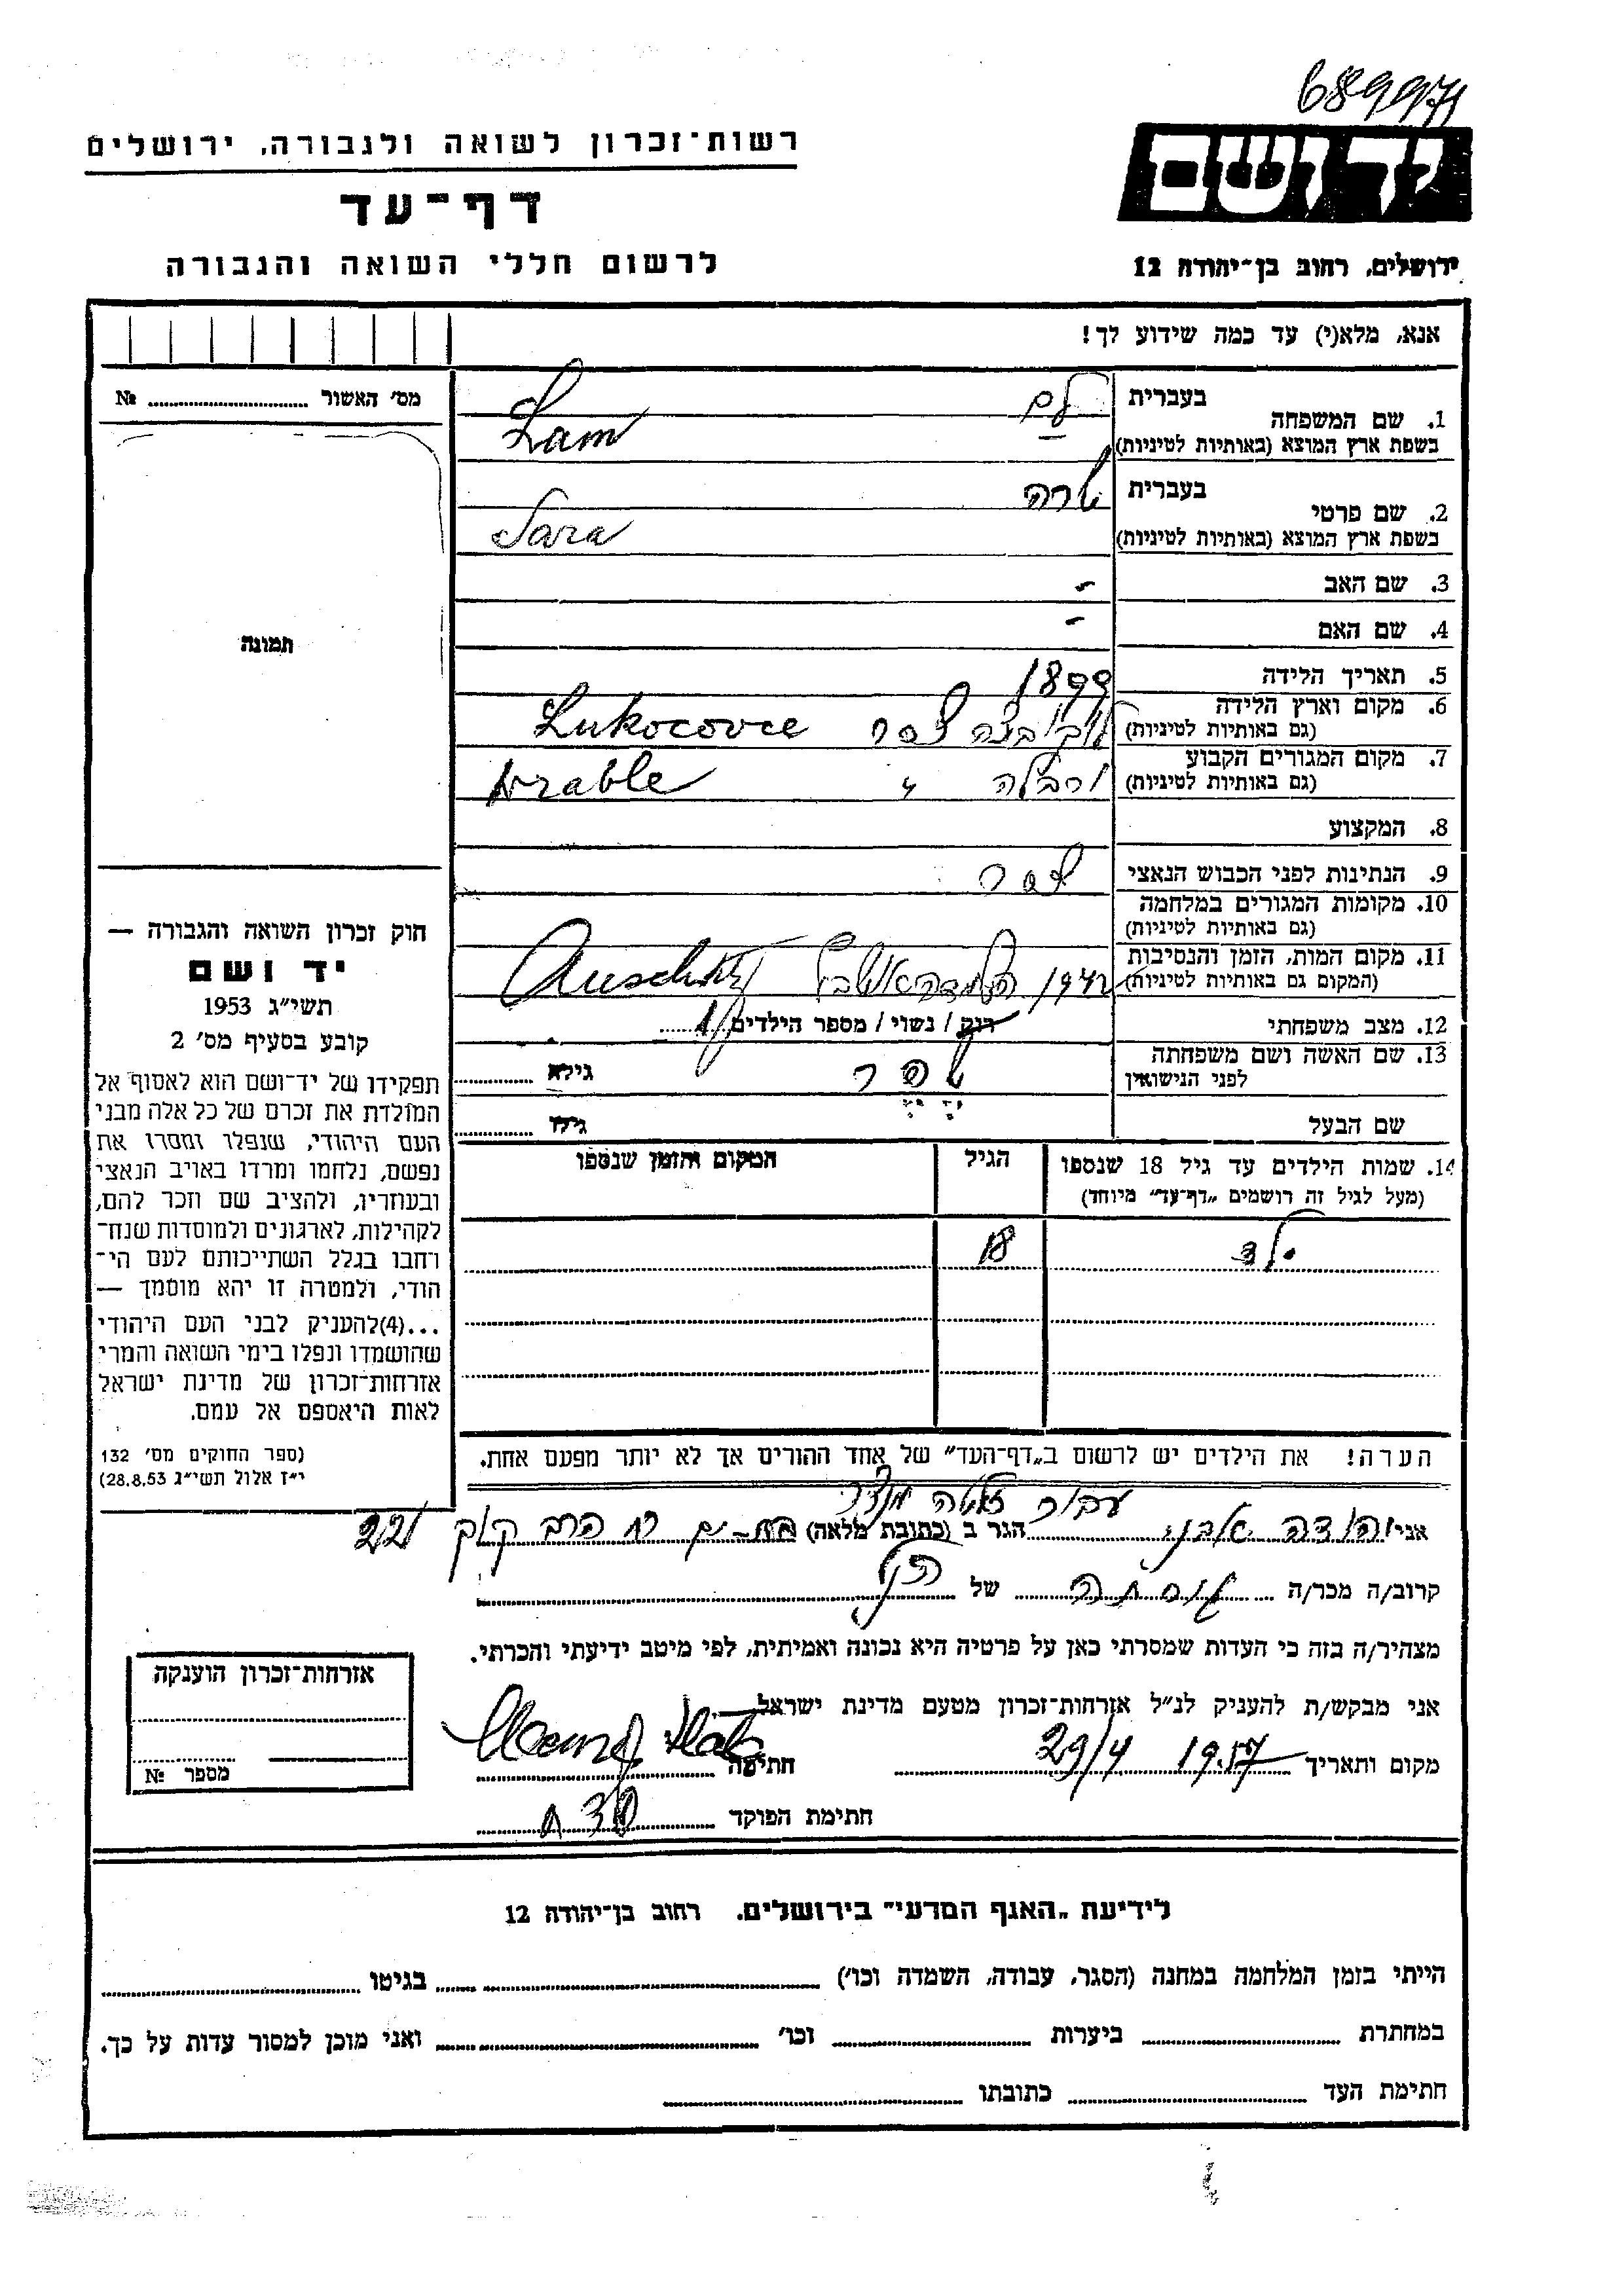 689971
רשות־זכרון לשואה ולגבורה, ירושלים
יד ושם
דף־עד
לרשום חללי השואה והגבורה
ירושלים, רחוב בן־יהודה 12
אנא, מלא(י) עד כמה שידוע לך!
מס׳ האשור № 
תמונה
1. שם המשפחה
בעברית לם
בשפת ארץ המוצא (באותיות לטיניות) Lam
2. שם פרטי
בעברית שרה
בשפת ארץ המוצא (באותיות לטיניות) Sara
3. שם האב -
4. שם האם -
5. תאריך הלידה 1899
6. מקום וארץ הלידה
(גם באותיות לטיניות) צ׳ס ר Lukocovce
7. מקום המגורים הקבוע
(גם באותיות לטיניות) ורבלה " Vrable
8. המקצוע
9. הנתינות לפני הכבוש הנאצי צ׳ס ר
10. מקומות המגורים במלחמה
(גם באותיות לטיניות)
11. מקום המות, הזמן והנסיבות
(המקום גם באותיות לטיניות) 1942
12. מצב משפחתי רוק / נשוי / מספר הילדים 1
13. שם האשה ושם משפחתה
לפני הנישואין גילה
שם הבעל גילו
14. שמות הילדים עד גיל 18 שנספו
(מעל לגיל זה רושמים „דף־עד״ מיוחד)
הגיל
המקום והזמן שנספו
ילד 18
הערה! את הילדים יש לרשום ב„דף־העד״ של אחד ההורים אך לא יותר מפעם אחת.
חוק זכרון השואה והגבורה —
יד ושם
תשי״ג 1953
קובע בסעיף מס׳ 2
תפקידו של יד־ושם הוא לאסוף אל
המולדת את זכרם של כל אלה מבני
העם היהודי, שנפלו ומסרו את
נפשם, נלחמו ומרדו באויב הנאצי
ובעוזריו, ולהציב שם וזכר להם,
לקהילות, לארגונים ולמוסדות שנח־
רחבו בגלל השתייכותם לעם הי־
הודי, ולמטרה זו יהא מוסמך —
...(4)להעניק לבני העם היהודי
שהושמדו ונפלו בימי השואה והמרי
אזרחות־זכרון של מדינת ישראל
לאות היאספם אל עמם.
(ספר החוקים מס׳ 132
י״ז אלול תשי״ג 28.8.53)
עבור
אני יהודה אבני הגר ב (כתובת מלאה) בת-ים רח הרב קוק 22
קרוב/ה מכר/ה של הנ״ל
מצהיר/ה בזה כי העדות שמסרתי כאן על פרטיה היא נכונה ואמיתית, לפי מיטב ידיעתי והכרתי.
אני מבקש/ת להעניק לנ״ל אזרחות־זכרון מטעם מדינת ישראל
מקום ותאריך 29/4 1957 חתימה
חתימת הפוקד
אזרחות־זכרון הוענקה
מספר №
לידיעת „האגף המדעי״ בירושלים, רחוב בן־יהודה 12
הייתי בזמן המלחמה במחנה (הסגר, עבודה, השמדה וכו׳) בגיטו
במחתרת ביערות וכו׳ ואני מוכן למסור עדות על כך.
חתימת העד כתובתו